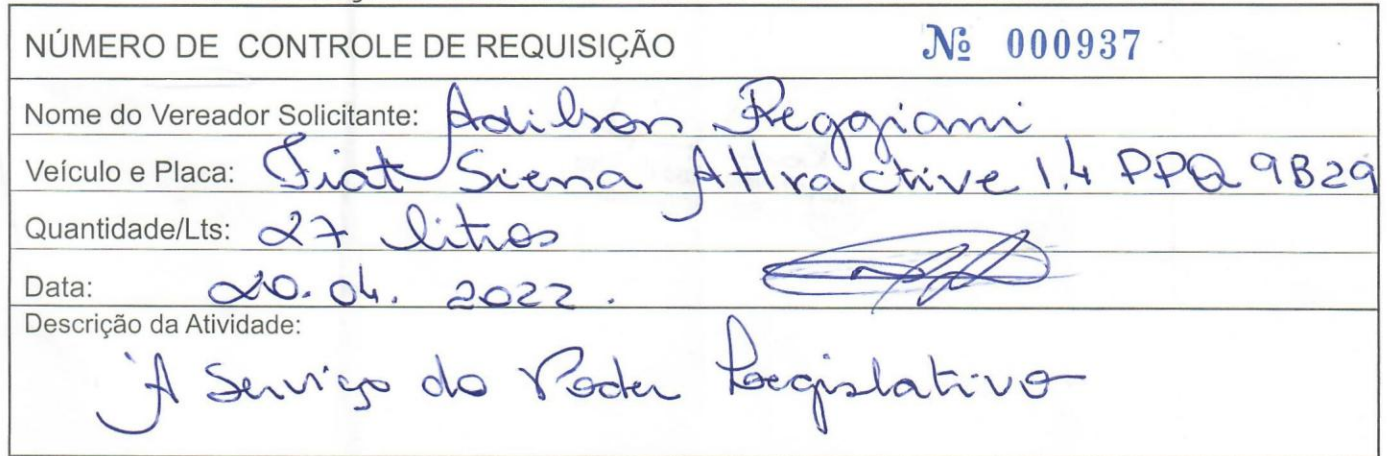 NÚMERO DE CONTROLE DE REQUISIÇÃO Nº 000937
Nome do Vereador Solicitante: Adilson Reggiani
Veículo e Placa: Fiat Siena Attractive 1.4 PPQ 9B29
Quantidade/Lts: 27 litros
Data: 20.04.2022.
Descrição da Atividade:
À Serviço do Poder Legislativo